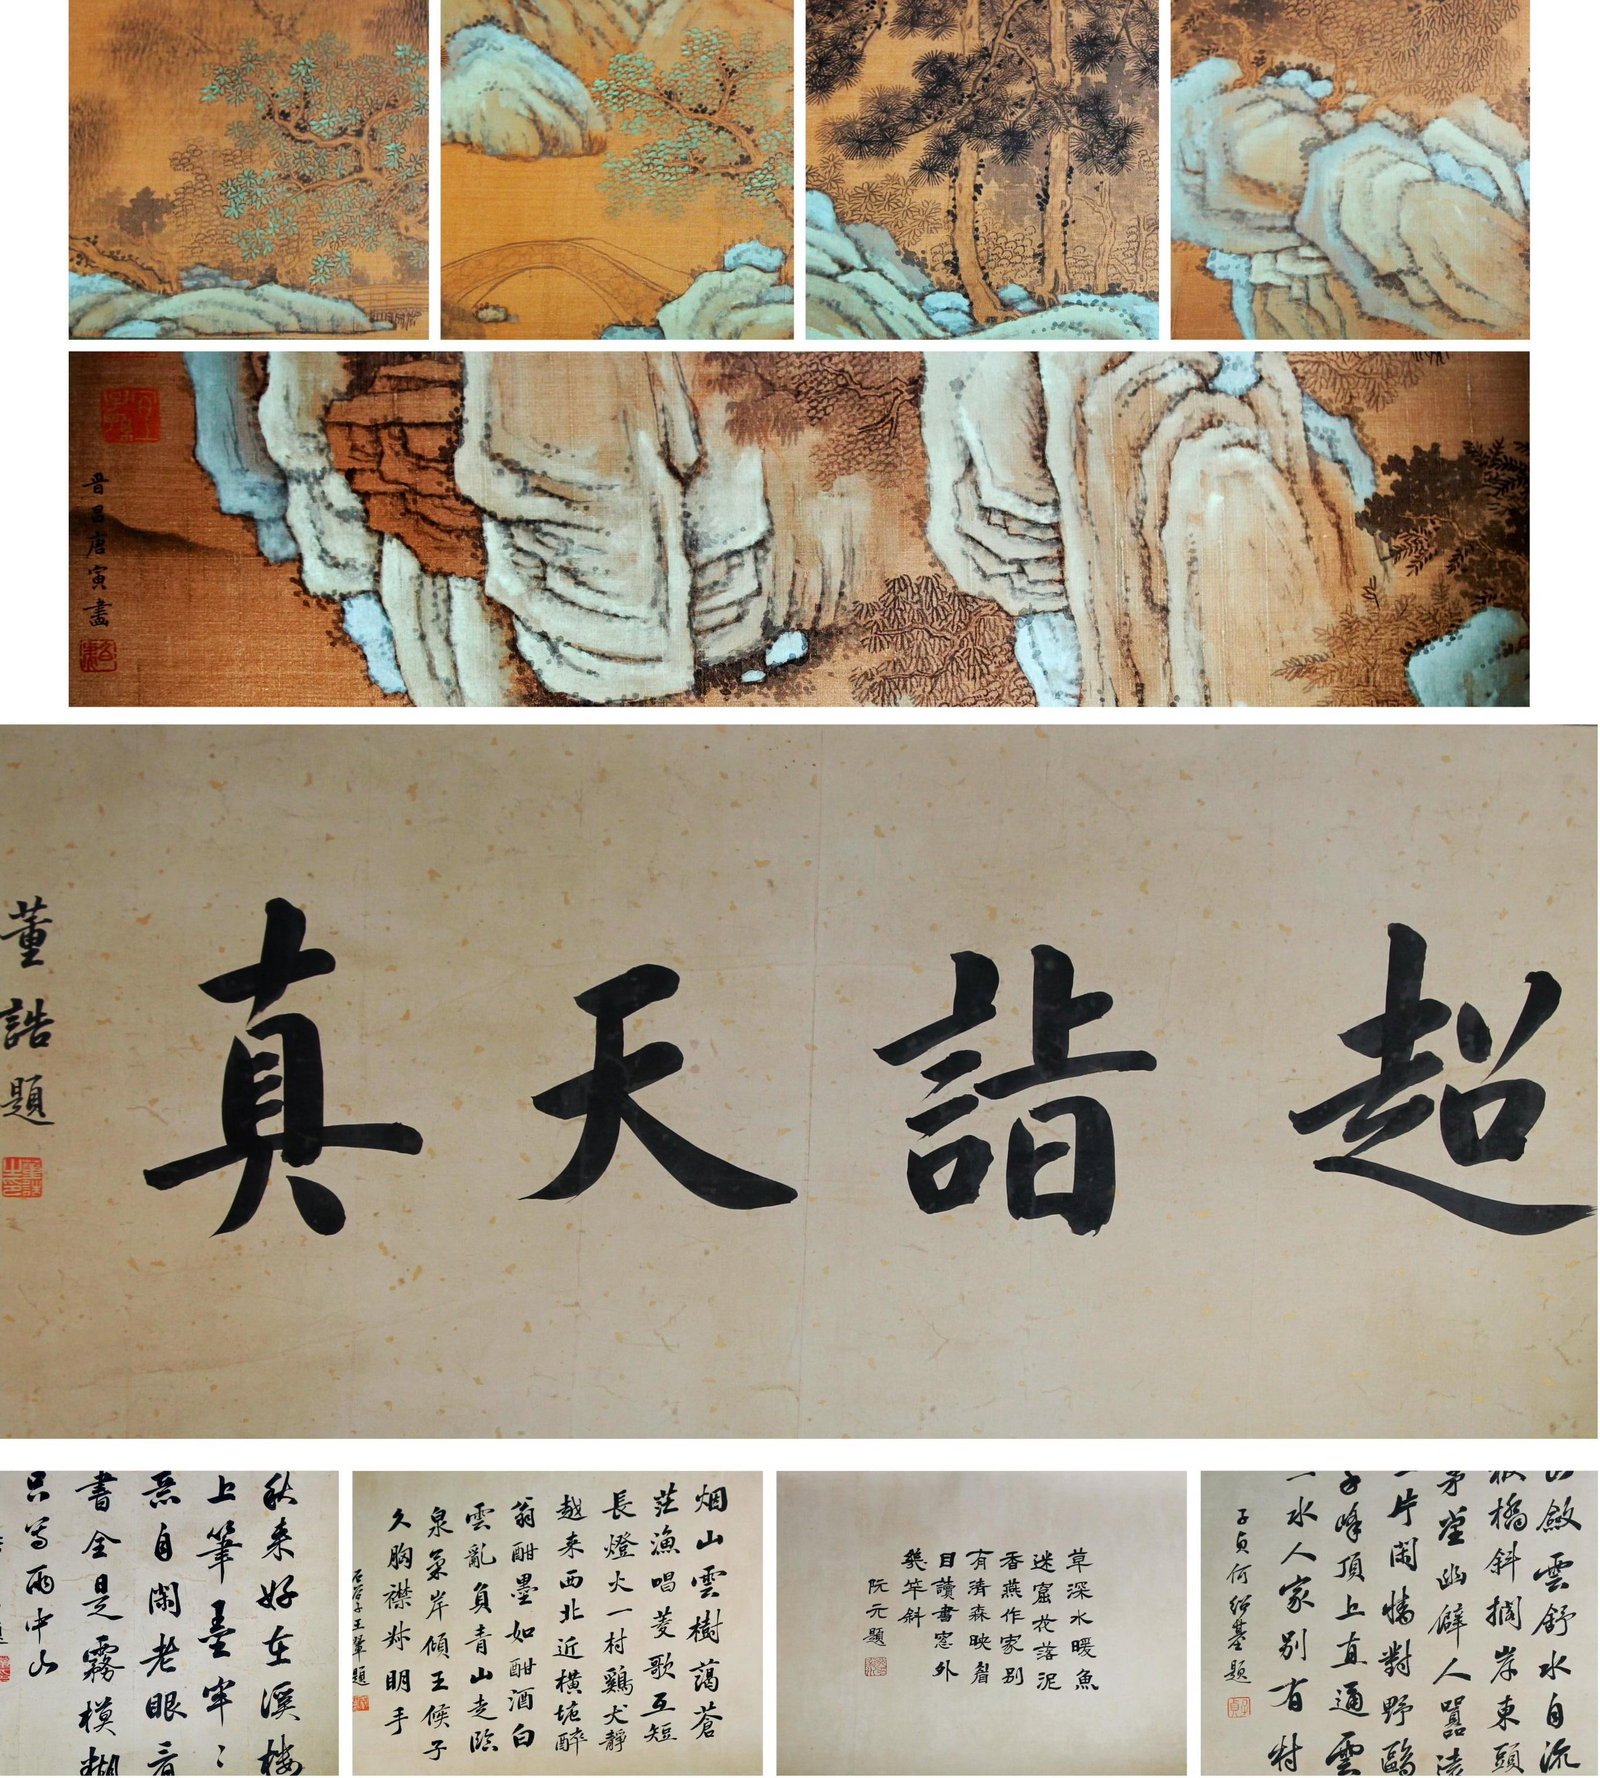 晋昌唐寅畫
超詣天真
董誥題
秋来好在溪楼
上筆墨牢〻
意自閑老眼看
書全是霧模糊
只写雨中山
烟山雲樹藹蒼
茫漁唱菱歌互短
長燈火一村鷄犬靜
越来西北近横塘醉
翁酣墨如酣酒白
雲亂負青山走臨
泉氣岸傾王候子
久胸襟妙明手
石谷子王翬題
草深水暖魚
迷窟花落泥
香燕作家别
有清森映眉
目讀書窓外
幾竿斜
阮元題
山斂雲舒水自流
板橋斜搁岸東頭
茅堂幽僻人囂遠
一片閑情對野鷗
峰頂上直通雲
一水人家别有村
子貞何紹基題